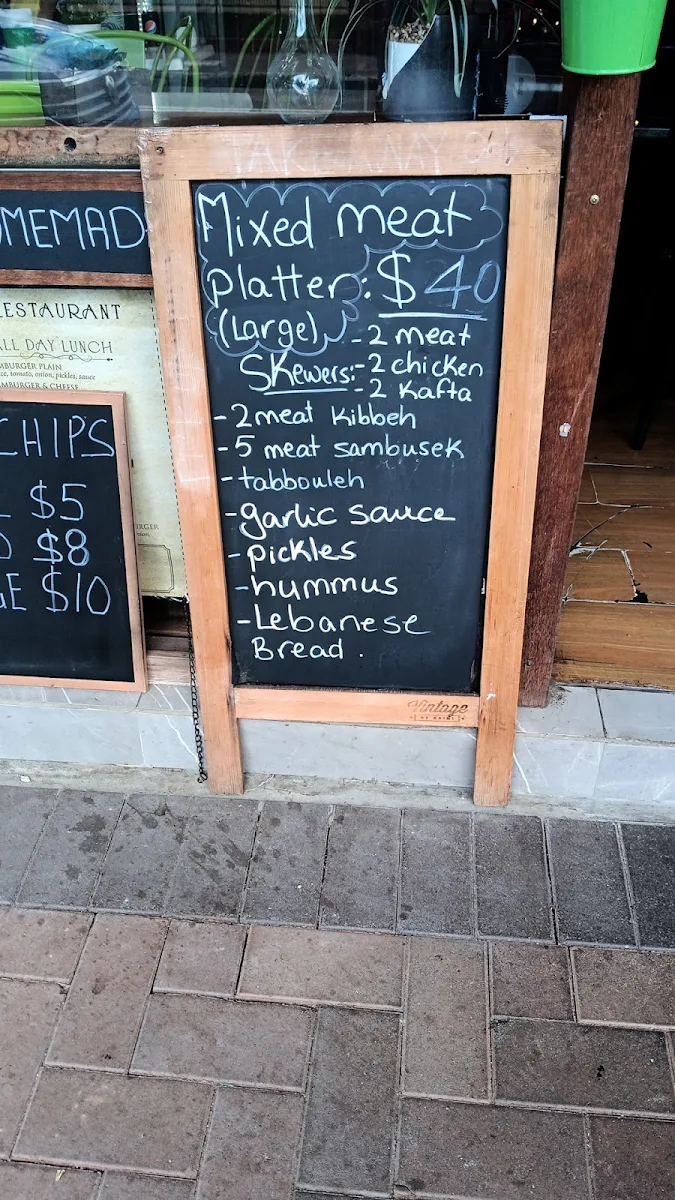 TAKEAWAY
Mixed meat
Platter: $40
(Large)
Skewers:
-2 meat
-2 chicken
-2 Kafta
-2 meat Kibbeh
-5 meat sambusek
-tabbouleh
-garlic sauce
-pickles
-hummus
-Lebanese
Bread.
Vintage
OMEMAD
RESTAURANT
ALL DAY LUNCH
AMBURGER PLAIN
ce, tomato, onion, pickles, sauce
AMBURGER & CHEESE
URGER
CHIPS
$5
$8
GE $10